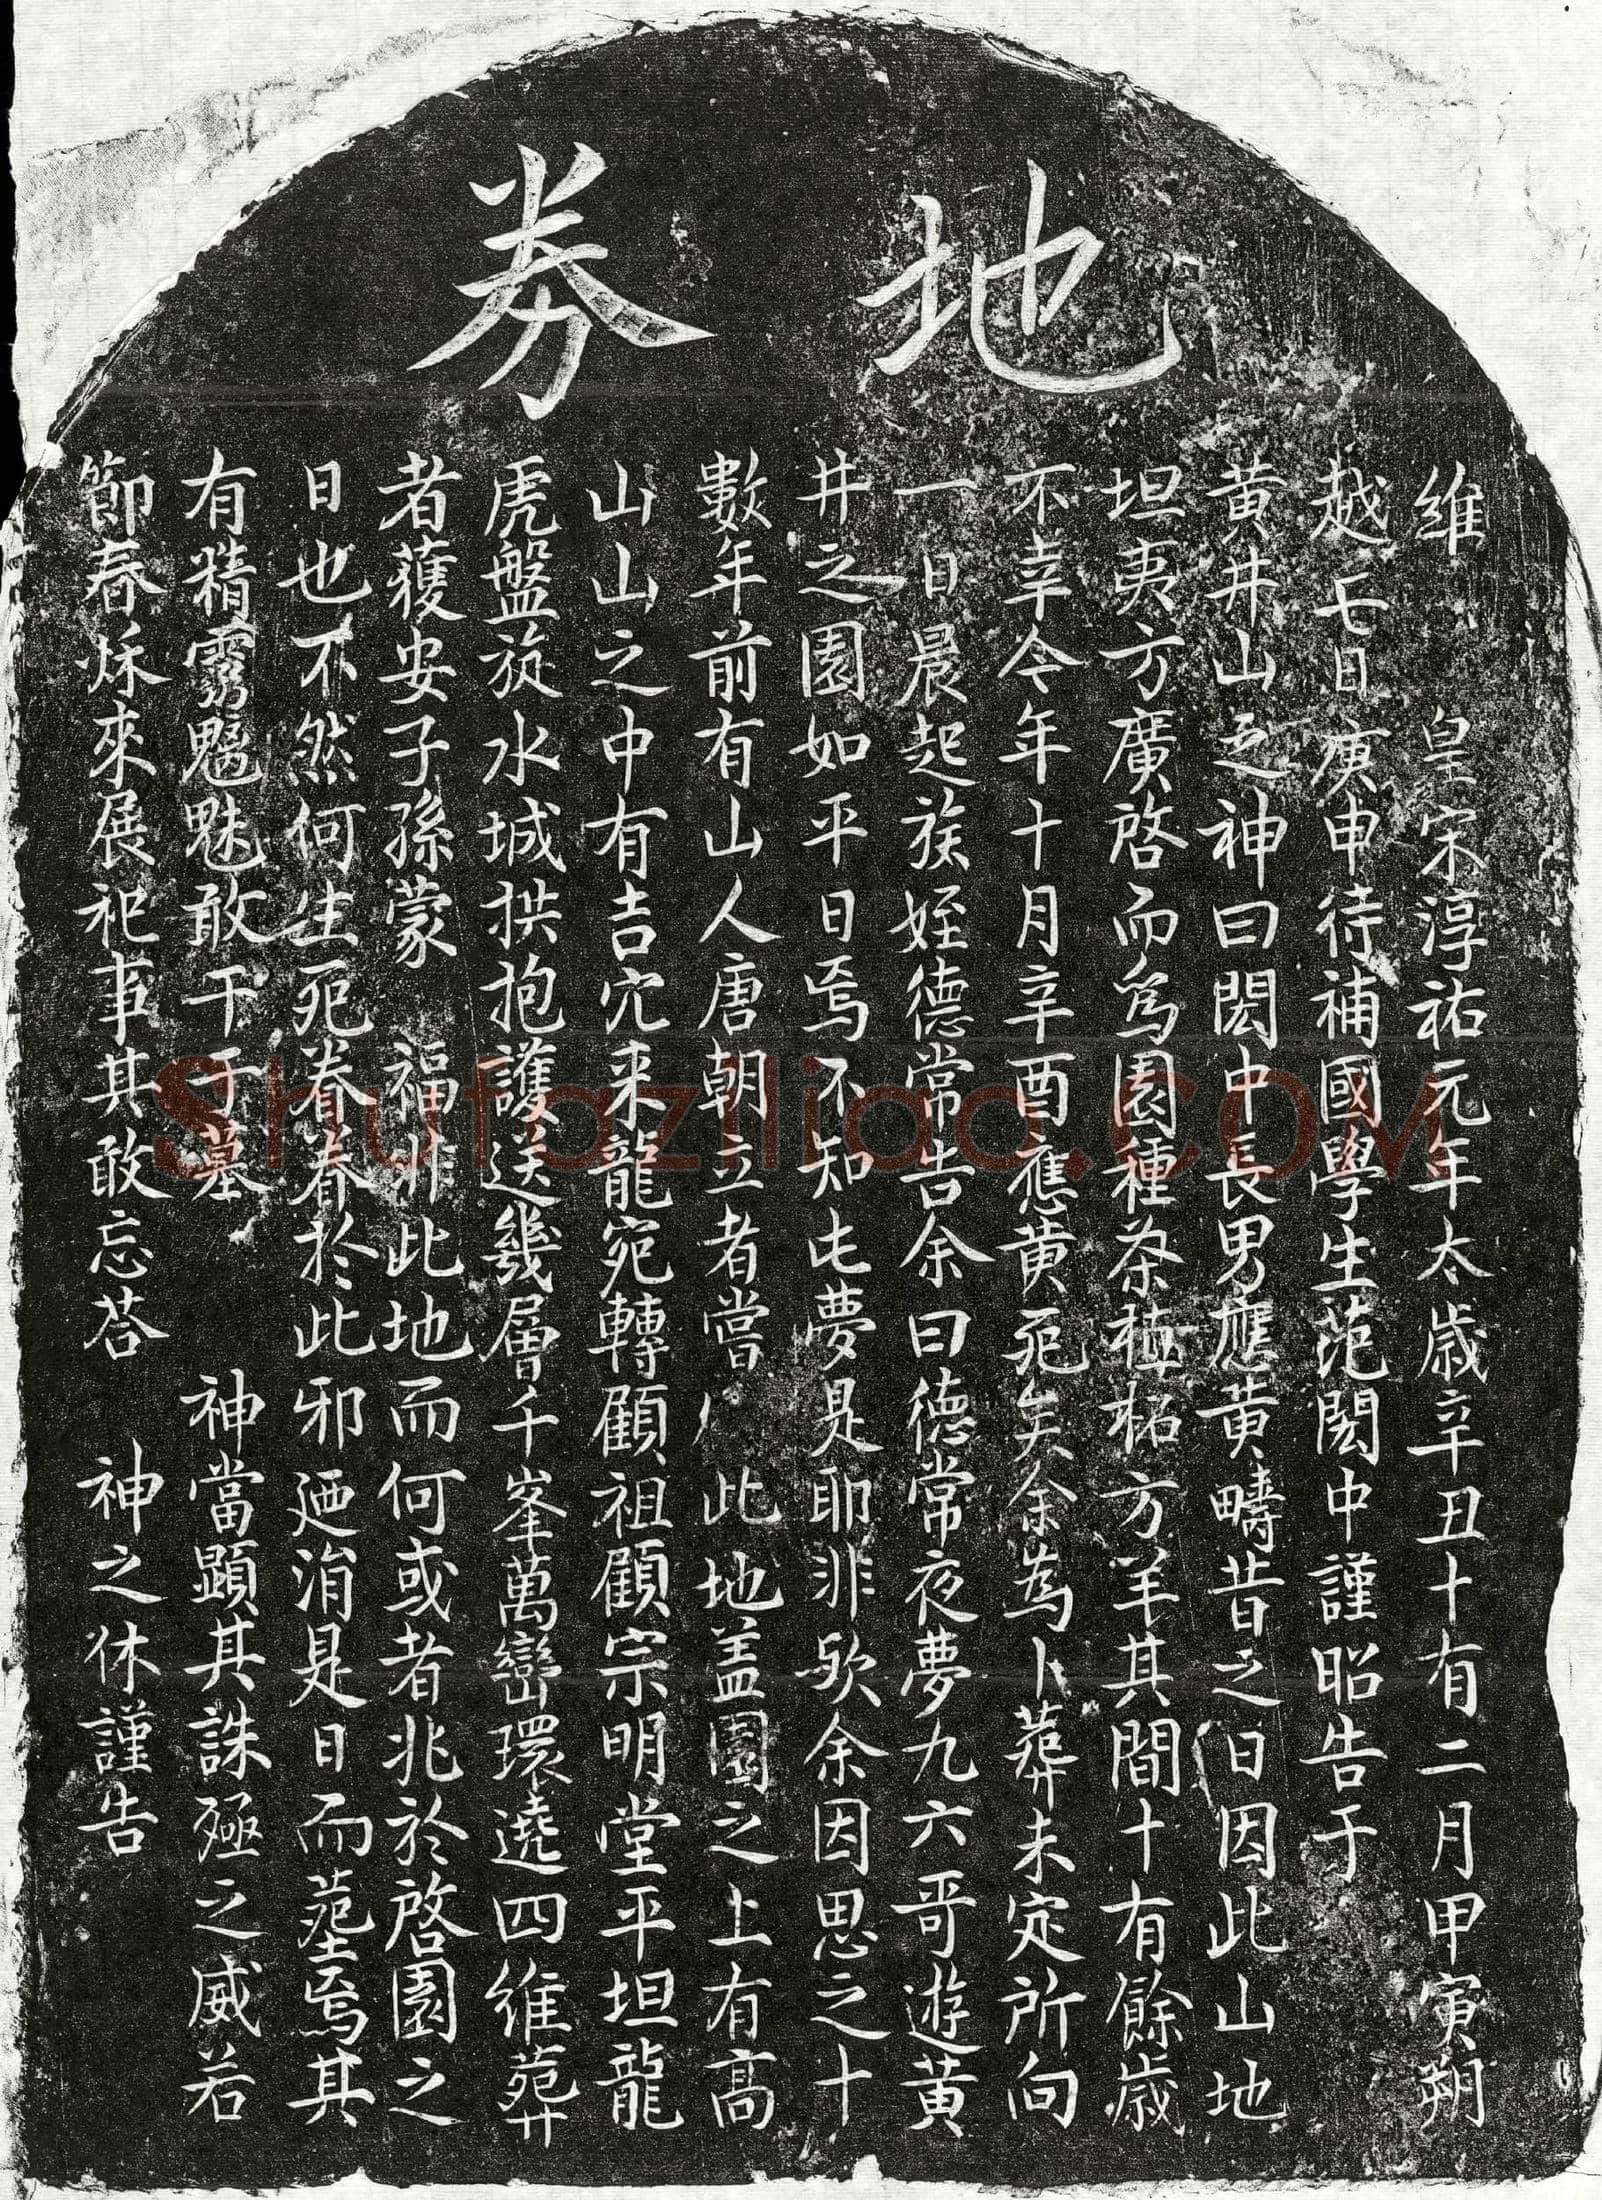 地券
維 皇宋淳祐元年太歲辛丑十有二月甲寅朔
越七日庚申待補國學生范閎中謹昭告于
黄井山之神曰閎中長男應黄疇昔之日因此山地
坦夷方廣啓而爲園種茶植柘方羊其間十有餘歲
不幸今年十月辛酉應黄死矣余爲卜葬未定所向
一日晨起族姪德常告余曰德常夜夢九六哥遊黄
井之園如平日焉不知此夢是耶非歟余因思之十
數年前有山人唐朝立者嘗 此地盖園之上有高
山山之中有吉穴来龍宛轉顧祖顧宗明堂平坦龍
虎盤旋水城拱抱護送幾層千峯萬巒環遶四維葬
者獲安子孫蒙 福非此地而何或者兆於啓園之
日也不然何生死眷眷於此邪廼涓是日而葬焉其
有精靈魑魅敢干于墓 神當顯其誅殛之威若
節春秌來展祀事其敢忘荅 神之休謹告
Shufaziliao.COM